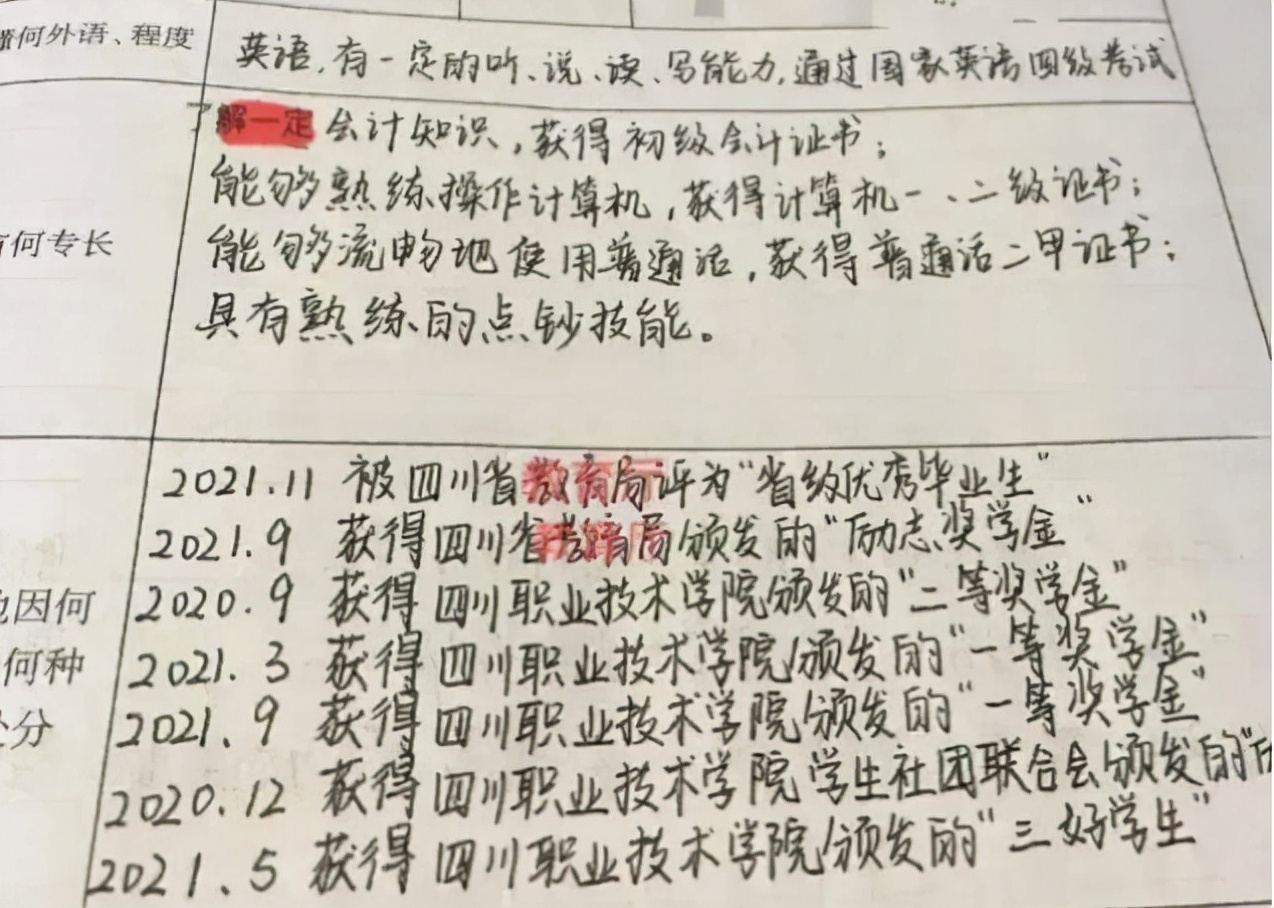 懂何外语、程度
英语,有一定的听、说、读、写能力,通过国家英语四级考试
了解一定会计知识,获得初级会计证书;
能够熟练操作计算机,获得计算机一、二级证书;
有何专长
能够流畅地使用普通话,获得普通话二甲证书;
具有熟练的点钞技能。
2021.11 被四川省教育局评为“省级优秀毕业生”
2021.9 获得四川省教育局颁发的“励志奖学金”
因何
2020.9 获得四川职业技术学院颁发的“二等奖学金”
何种
2021.3 获得四川职业技术学院颁发的“一等奖学金”
处分
2021.9 获得四川职业技术学院颁发的“一等奖学金”
2020.12 获得四川职业技术学院学生社团联合会颁发的“
2021.5 获得四川职业技术学院颁发的“三好学生”